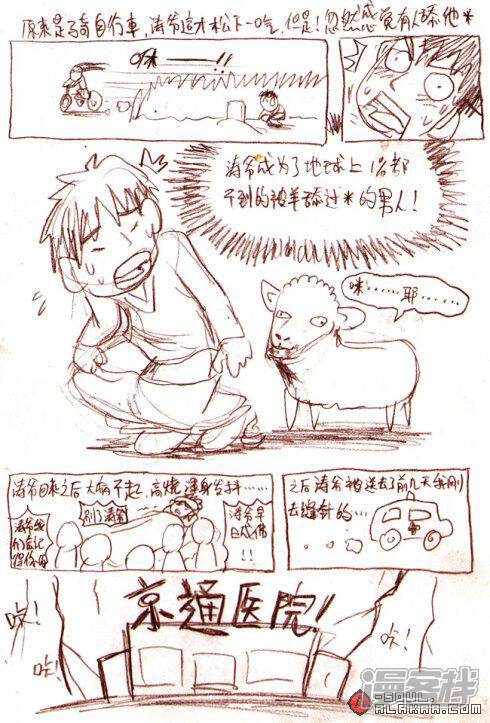 原来是骑自行车，涛爷这才松下一口气，但是！忽然感觉有人舔他*
咻——!!
涛爷成为了地球上1名都
不到的被羊舔过*的男人！
咪……耶……
涛爷回来之后大病不起，高烧，浑身发抖……
涛爷我
们会记
得你的
别了涛爷
涛爷早
日成佛
之后涛爷被送去了前几天我刚
去缝针的…
京通医院！
咔！
咔！
咔！
漫客栈
ASOUL.
ALAKAA.COM